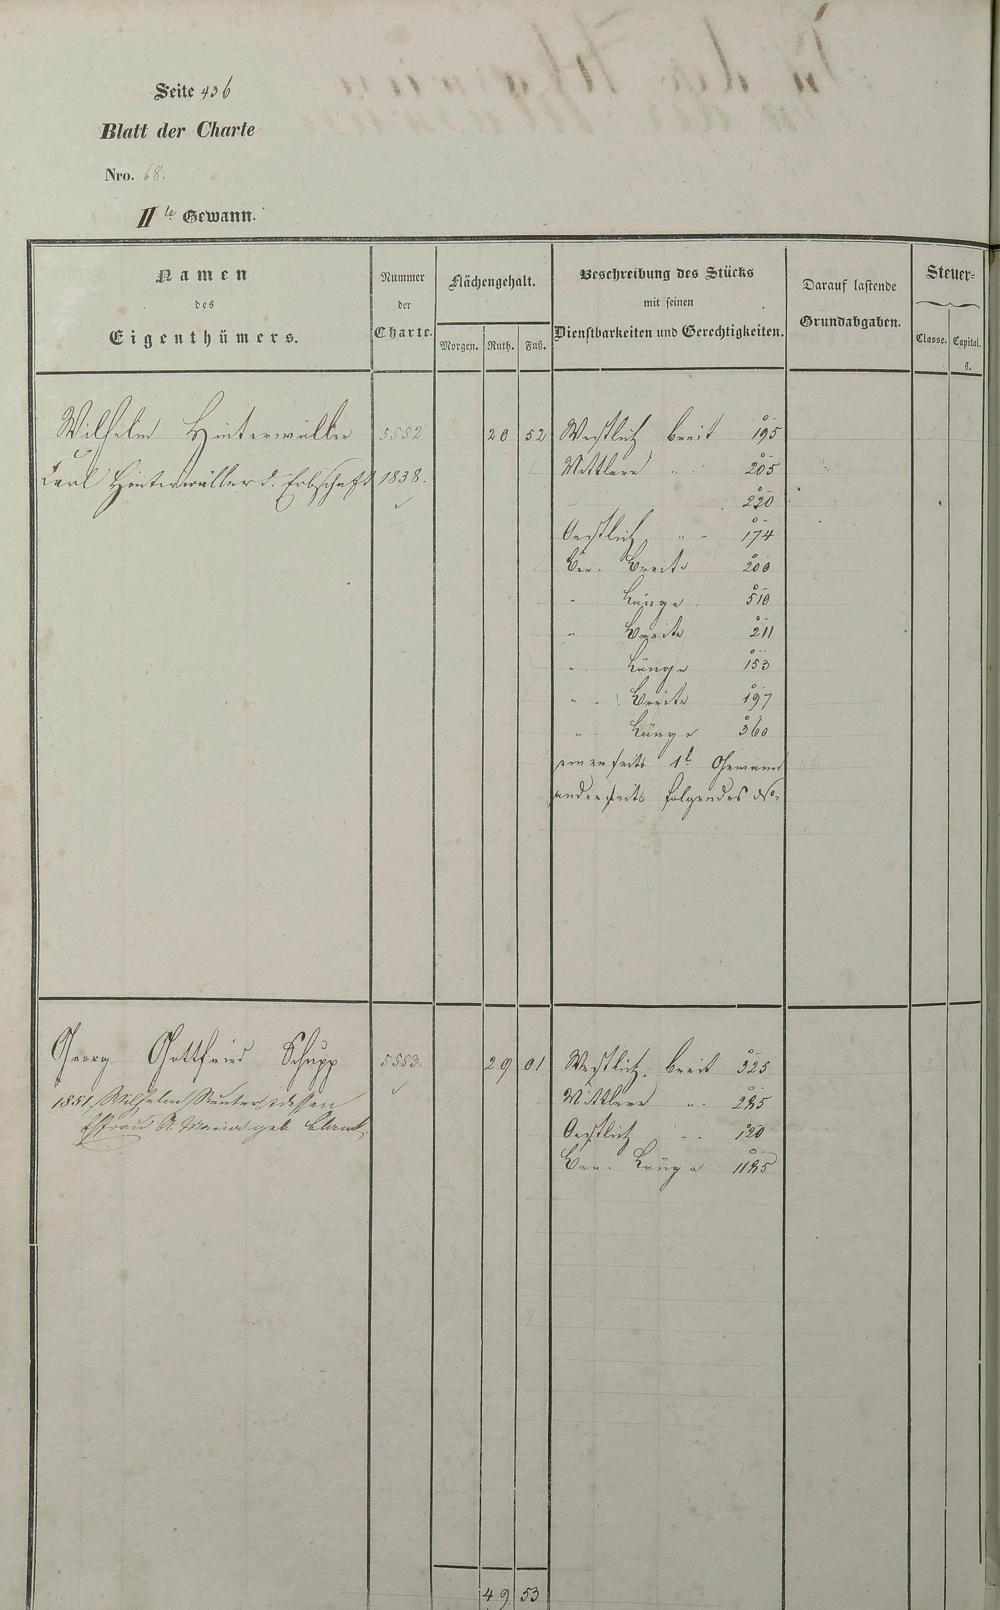 Seite 436
Blatt der Charte
Nro. 68.
II te Gewann.
Namen des Eigenthümers.
Nummer der Charte.
Flächengehalt.
Morgen. Ruth. Fuß.
Beschreibung des Stücks mit seinen Dienstbarkeiten und Gerechtigkeiten.
Darauf lastende Grundabgaben.
Steuer=
Classe. Capital. fl.
Wilhelm Hinterwäller 5552 20 52 Westlich breit 195
Carl Hinterwäller d. Erbschaft 1838. Mittlere " 205
220
Oestlich " - 174
Ver. Breite 200
" Länge 510
" Breite 211
" Länge 153
" Breite 197
" Länge 360
einerseits 1t Gewann
anderseits folgendes No.
Georg Gottfried Schupp 5553. 29 01 Westlich breit 325
1851 Wilhelm dessen Mittlere " 285
Ehfrau A. Maria geb. Oestlich " 120
Ver. Länge 1185
49 53